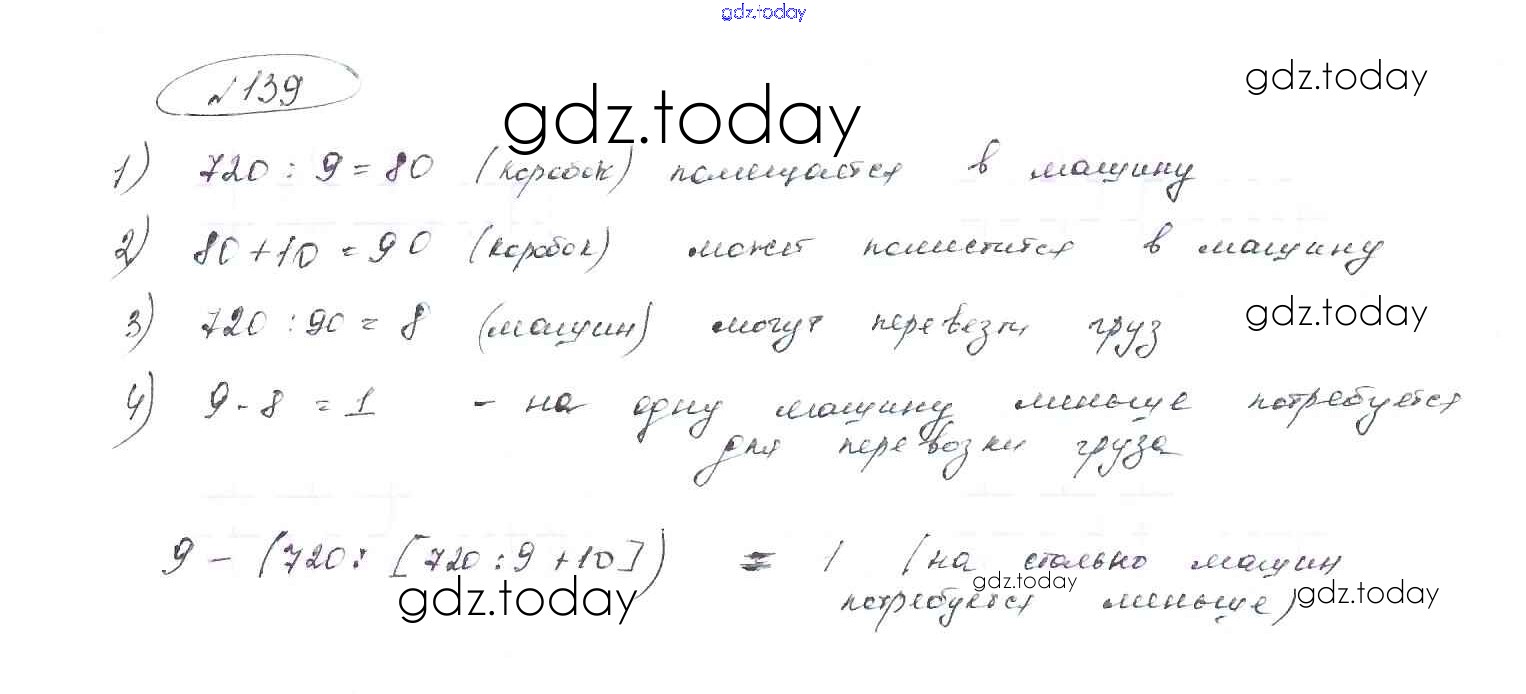 gdz.today
№139
gdz.today
gdz.today
1) 720 : 9 = 80 (коробок) помещается в машину
2) 80 + 10 = 90 (коробок) может поместится в машину
3) 720 : 90 = 8 (машин) могут перевезти груз
gdz.today
4) 9 - 8 = 1 - на одну машину меньше потребуется
для перевозки груза
9 - (720 : [720 : 9 + 10]) = 1 (на столько машин
потребуется меньше)
gdz.today
gdz.today
gdz.today